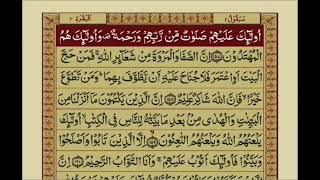 سيقول ٢
البقرة ٢
اُولٰٓئِكَ عَلَيْهِمْ صَلَوٰتٌ مِّنْ رَّبِّهِمْ وَرَحْمَةٌ وَاُولٰٓئِكَ هُمُ
الْمُهْتَدُوْنَ ﴿١٥٧﴾ اِنَّ الصَّفَا وَالْمَرْوَةَ مِنْ شَعَآئِرِ اللّٰهِ فَمَنْ حَجَّ
الْبَيْتَ اَوِ اعْتَمَرَ فَلَا جُنَاحَ عَلَيْهِ اَنْ يَّطَّوَّفَ بِهِمَا وَمَنْ تَطَوَّعَ
خَيْرًا فَاِنَّ اللّٰهَ شَاكِرٌ عَلِيْمٌ ﴿١٥٨﴾ اِنَّ الَّذِيْنَ يَكْتُمُوْنَ مَآ اَنْزَلْنَا مِنَ
الْبَيِّنٰتِ وَالْهُدٰى مِنْۢ بَعْدِ مَا بَيَّنّٰهُ لِلنَّاسِ فِى الْكِتٰبِ اُولٰٓئِكَ
يَلْعَنُهُمُ اللّٰهُ وَيَلْعَنُهُمُ اللّٰعِنُوْنَ ﴿١٥٩﴾ اِلَّا الَّذِيْنَ تَابُوْا وَاَصْلَحُوْا
وَبَيَّنُوْا فَاُولٰٓئِكَ اَتُوْبُ عَلَيْهِمْ وَاَنَا التَّوَّابُ الرَّحِيْمُ ﴿١٦٠﴾ اِنَّ